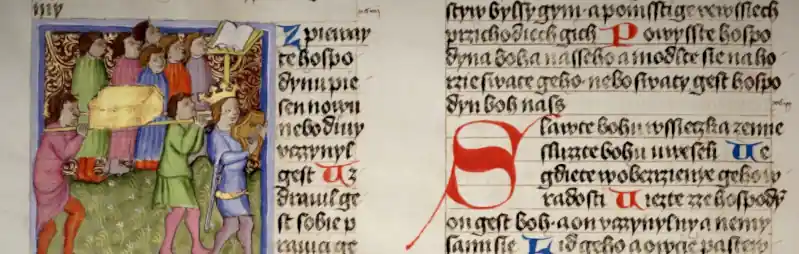 my
Zpieway
te hospo
dynu pie
sen nowu
nebo diwy
vczynyl
gest Uz
drawil ge
st sobie p
rawicige
styw byssy gym · a pomstige vewssiech
przichodiech gich Powysste hospo
dyna boha nasseho a modlte sie na ho
rzie swate geho · nebo swaty gest hospo
dyn boh nass
Slawte bohu wssiczka zemie
sluzte bohu uweseli Ue
gdiete wobezrzienye geho w
radosti Uiezte zze hospody
on gest boh · a on vczynyl ny a ne my
sami sie Lid geho a owcie pastew